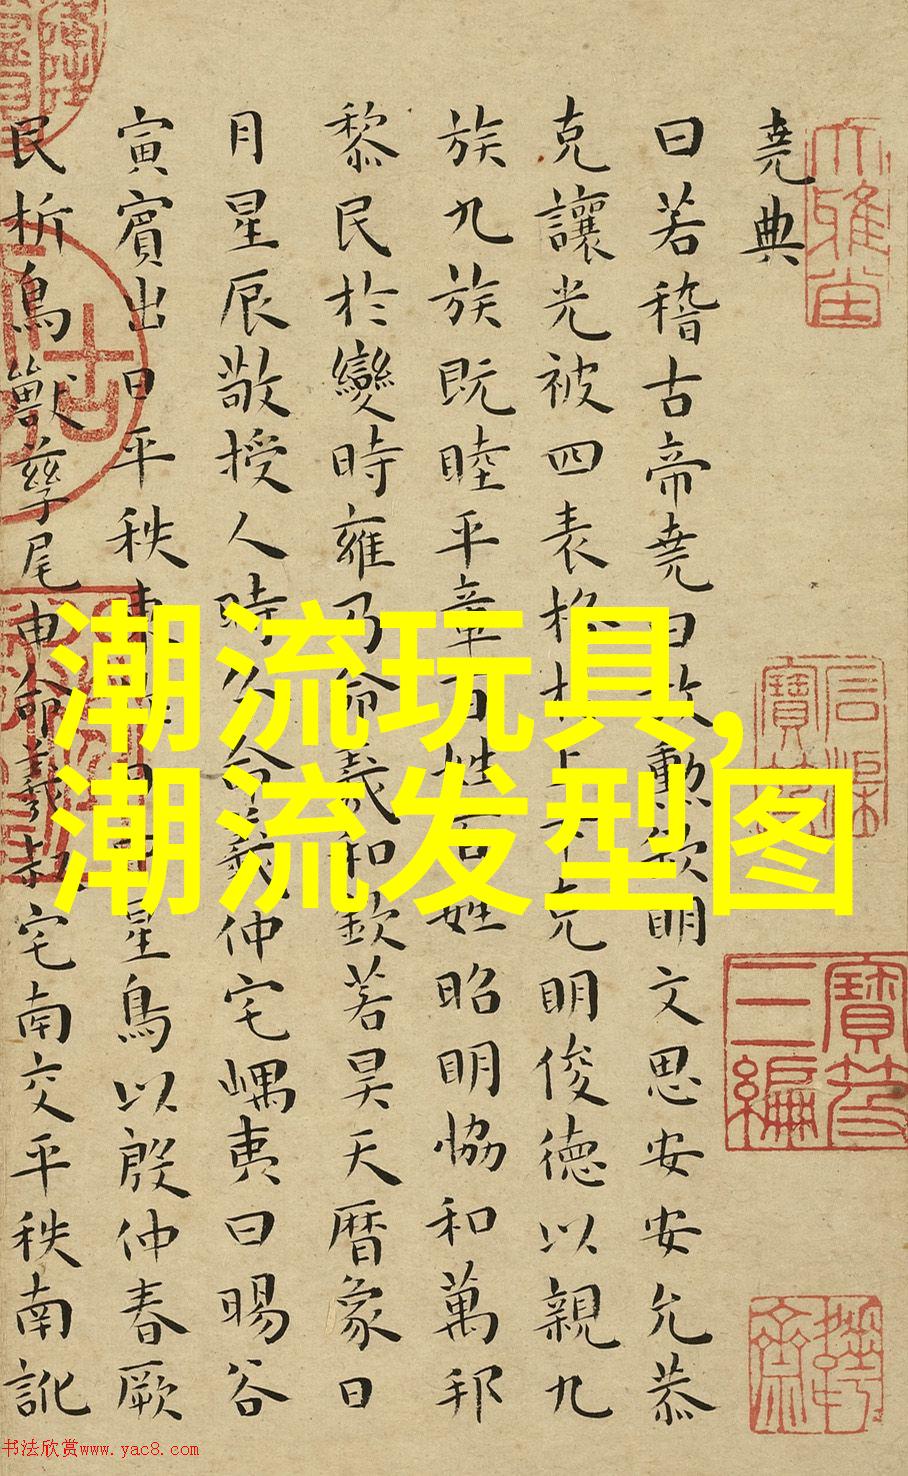 堯典
曰若稽古帝堯曰放勳欽明文思安安允恭
克讓光被四表格於上下克明俊德以親九
族九族既睦平章百姓百姓昭明協和萬邦
黎民於變時雍乃命羲和欽若昊天曆象日
月星辰敬授人時分命羲仲宅嵎夷曰暘谷
寅賓出日平秩東作日中星鳥以殷仲春厥
民析鳥獸孳尾申命羲叔宅南交平秩南訛
潮流玩具,
潮流发型图
石渠
寶笈
寶笈
三編
书法欣赏www.yac8.com